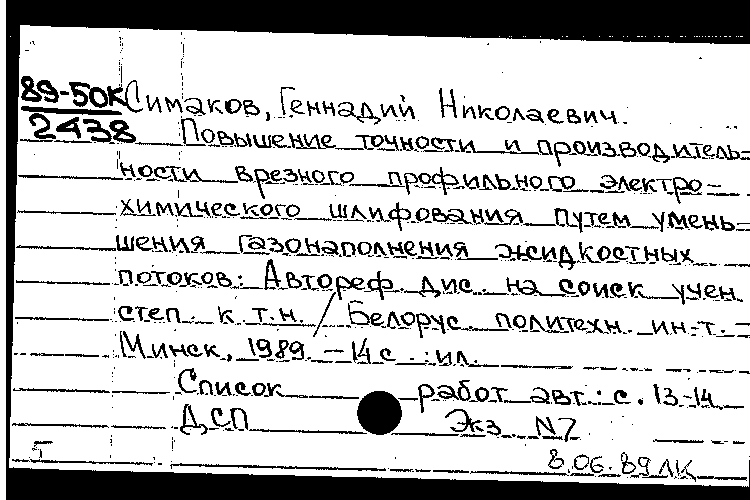 89-50К Симаков, Геннадий Николаевич.
2438 Повышение точности и производитель=
ности врезного профильного электро-
химического шлифования путем умень=
шения газонаполнения жидкостных
потоков: Автореф. дис. на соиск учен.
степ. к.т.н. / Белорус. политехн. ин-т. –
Минск, 1989. – 14 с.: ил.
Список работ авт.: с. 13-14
ДСП Экз. N7
5 8.06.89 ЛК